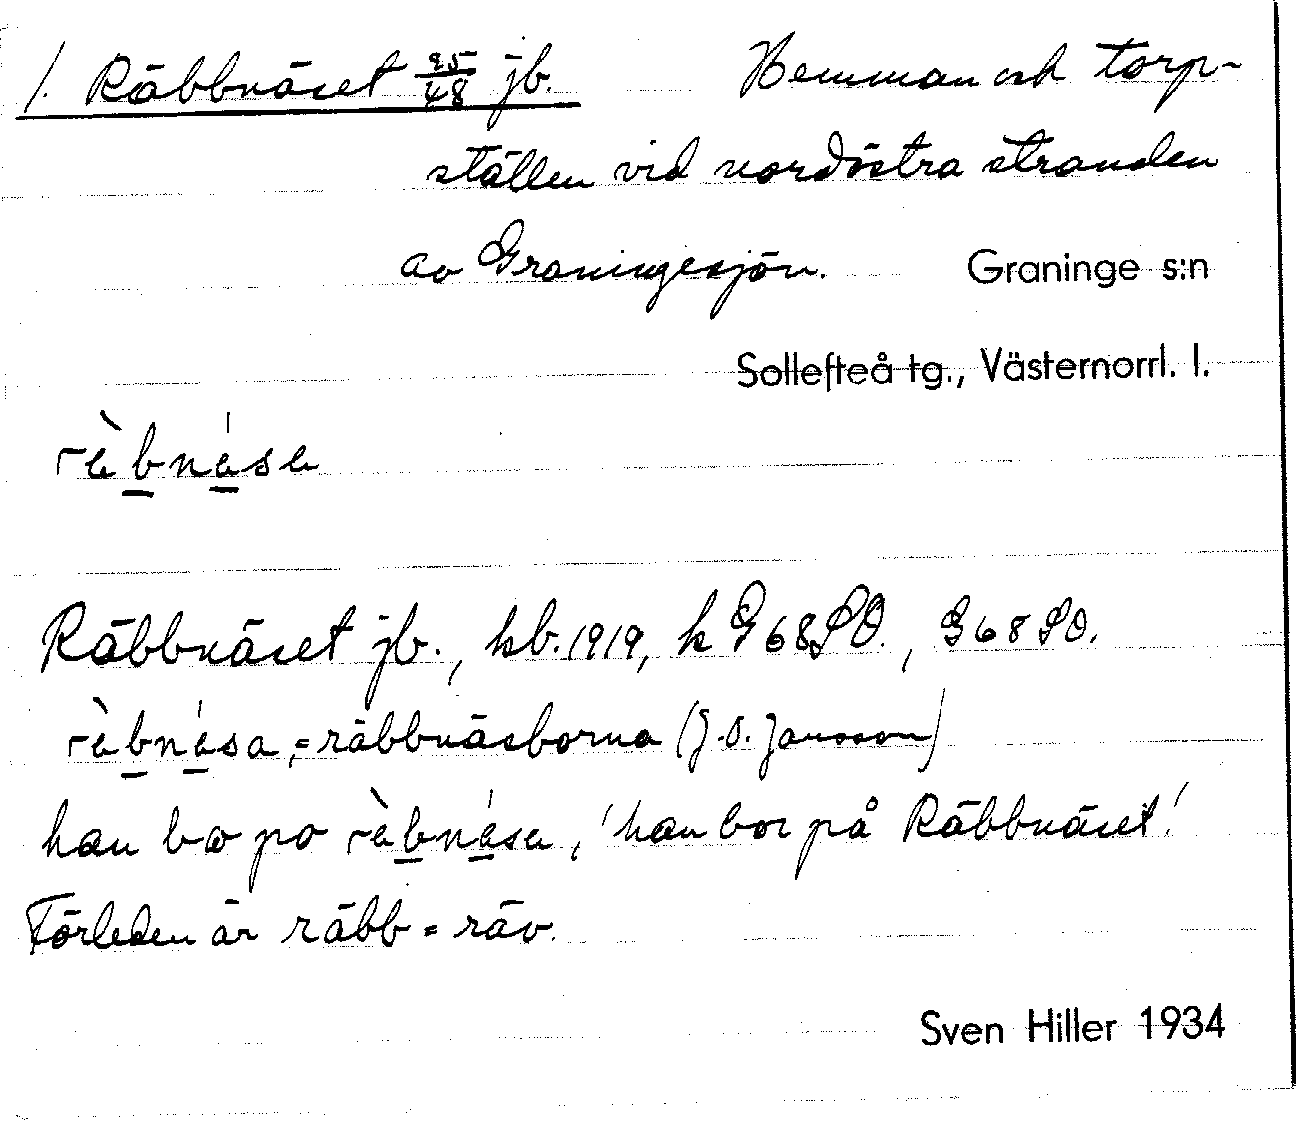 1. Räbbnäset 25/48 jb. Hemman och torp-
ställen vid nordöstra stranden
av Graningesjön. Graninge s:n
Sollefteå tg., Västernorrl. l.
rὲbnésɐ
Räbbnäset jb., kb. 1919, k G 68 SO., G 68 SO.
rὲbnésa, = räbbnäsborna (J.O. Jansson)
han bœ po rὲbnésɐ, 'han bor på Räbbnäset.'
Förleden är räbb = räv.
Sven Hiller 1934